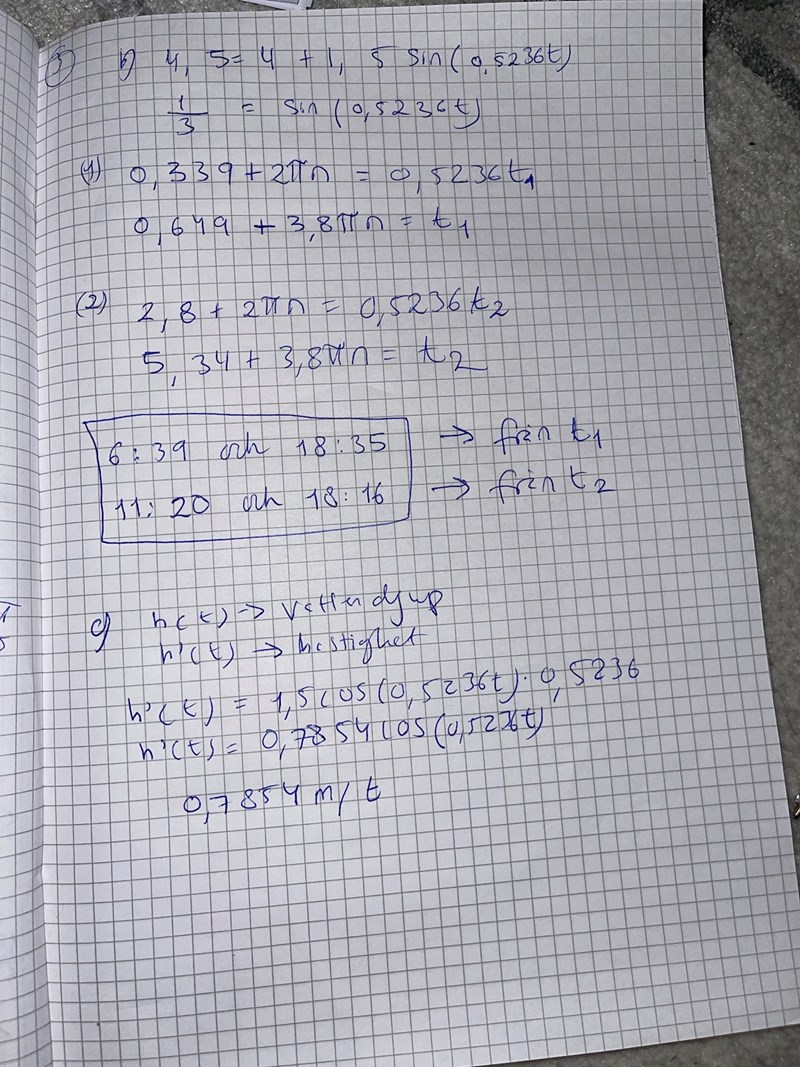 3) b) 4,5 = 4 + 1,5 sin(0,5236t)
1/3 = sin(0,5236t)
(1) 0,339 + 2πn = 0,5236t₁
0,649 + 3,8πn = t₁
(2) 2,8 + 2πn = 0,5236t₂
5,34 + 3,8πn = t₂
6:39 och 18:35 → från t₁
11:20 och 18:16 → från t₂
c) h(t) → Vattendjup
h'(t) → hastighet
h'(t) = 1,5cos(0,5236t)·0,5236
h'(t) = 0,7854cos(0,5236t)
0,7854 m/t